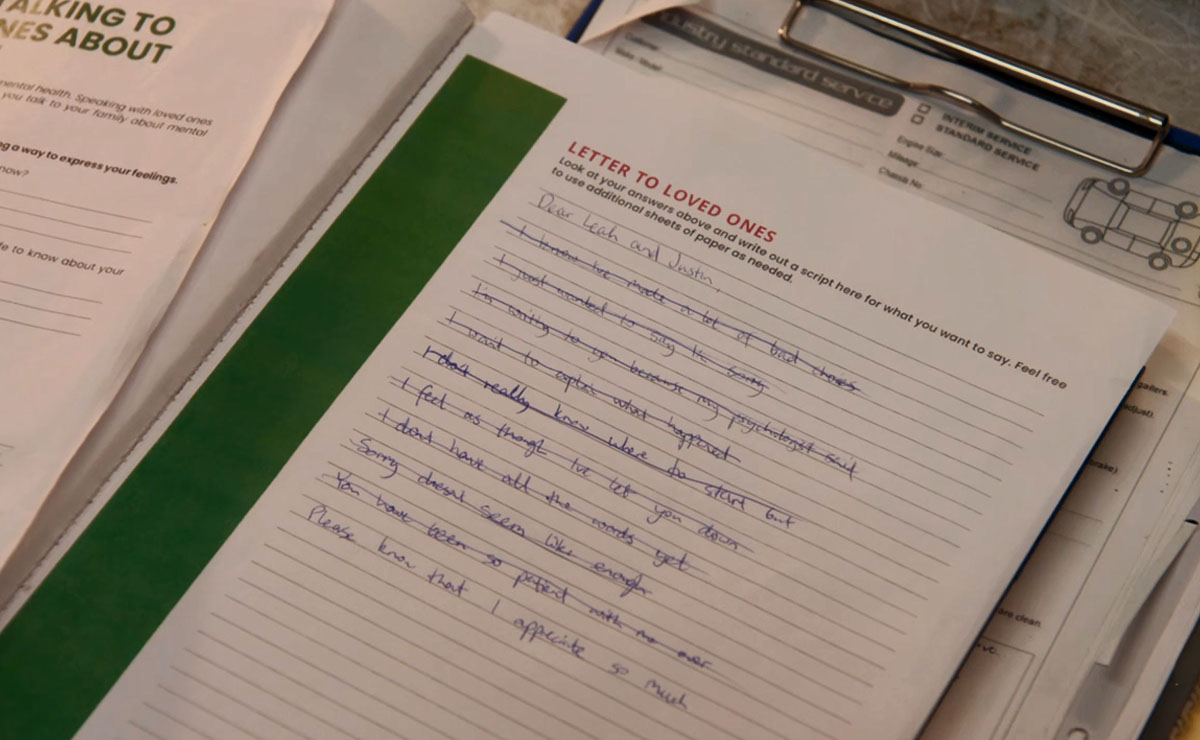 ALKING TO
NES ABOUT
mental health. Speaking with loved ones
you talk to your family about mental
ng a way to express your feelings.
now?
fe to know about your
dustry standard service
INTERIM SERVICE
STANDARD SERVICE
Engine Size
Mileage
Chassis No
LETTER TO LOVED ONES
Look at your answers above and write out a script here for what you want to say. Feel free
to use additional sheets of paper as needed.
Dear Leah and Justin,
I know I've made a lot of bad choices
I just wanted to say I'm sorry
I'm writing to you because my psychologist said
I want to explain what happened
I dont really know where to start but
I feel as though I've let you down
I dont have all the words yet
Sorry doesnt seem like enough
You have been so patient with me over
Please know that I appreciate so much
gaiters.
adjust).
brake)
are clean.